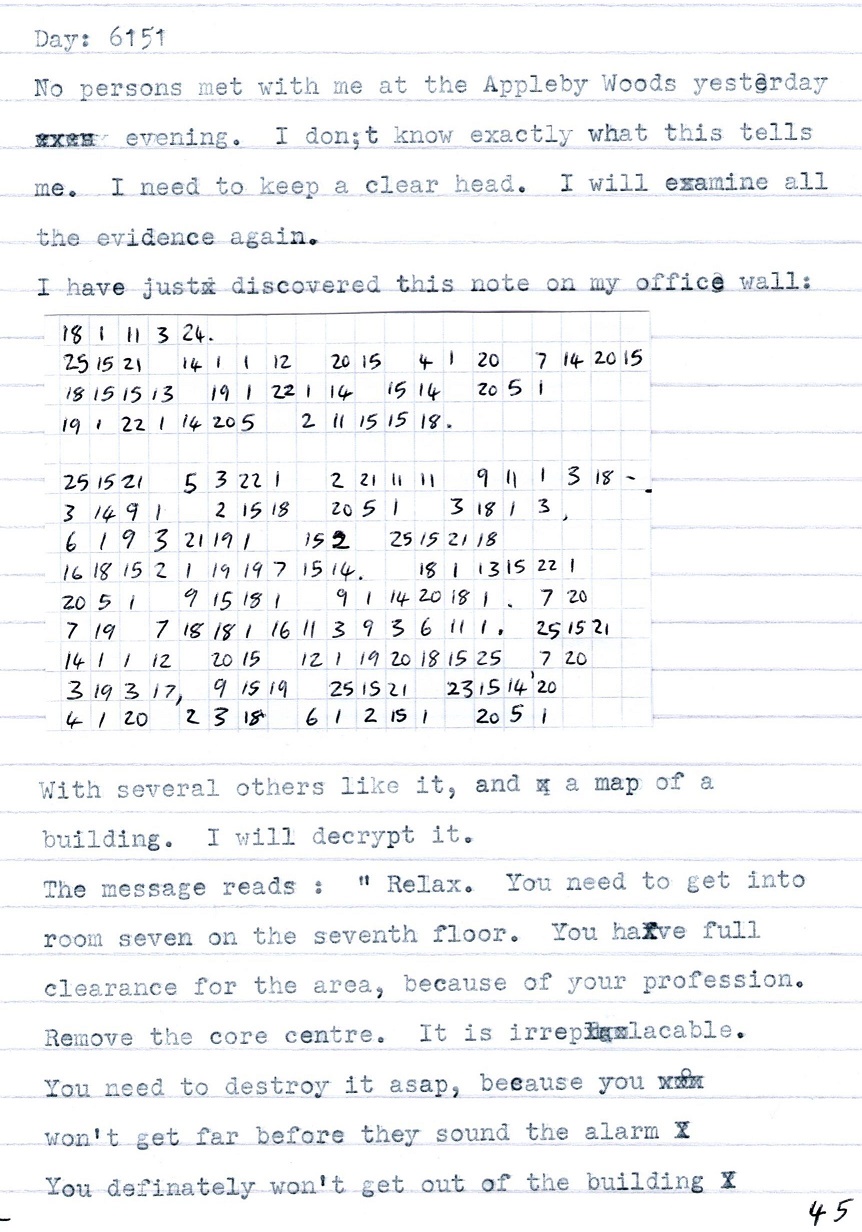 Day: 6151
No persons met with me at the Appleby Woods yesterday
evening. I don;t know exactly what this tells
me. I need to keep a clear head. I will examine all
the evidence again.
I have just discovered this note on my office wall:
18 1 11 3 24.
25 15 21 14 1 1 12 20 15 4 1 20 7 14 20 15
18 15 15 13 19 1 22 1 14 15 14 20 5 1
19 1 22 1 14 20 5 2 11 15 15 18.
25 15 21 5 3 22 1 2 21 11 11 9 11 1 3 18 -
3 14 9 1 2 15 18 20 5 1 3 18 1 3,
6 1 9 3 21 19 1 15 2 25 15 21 18
16 18 15 2 1 19 19 7 15 14. 18 1 13 15 22 1
20 5 1 9 15 18 1 9 1 14 20 18 1. 7 20
7 19 7 18 18 1 16 11 3 9 3 6 11 1. 25 15 21
14 1 1 12 20 15 12 1 19 20 18 15 25 7 20
3 19 3 17, 9 15 19 25 15 21 23 15 14 ' 20
4 1 20 2 3 18 6 1 2 15 1 20 5 1
With several others like it, and a map of a
building. I will decrypt it.
The message reads : " Relax. You need to get into
room seven on the seventh floor. You have full
clearance for the area, because of your profession.
Remove the core centre. It is irreplacable.
You need to destroy it asap, because you
won't get far before they sound the alarm
You definately won't get out of the building
45